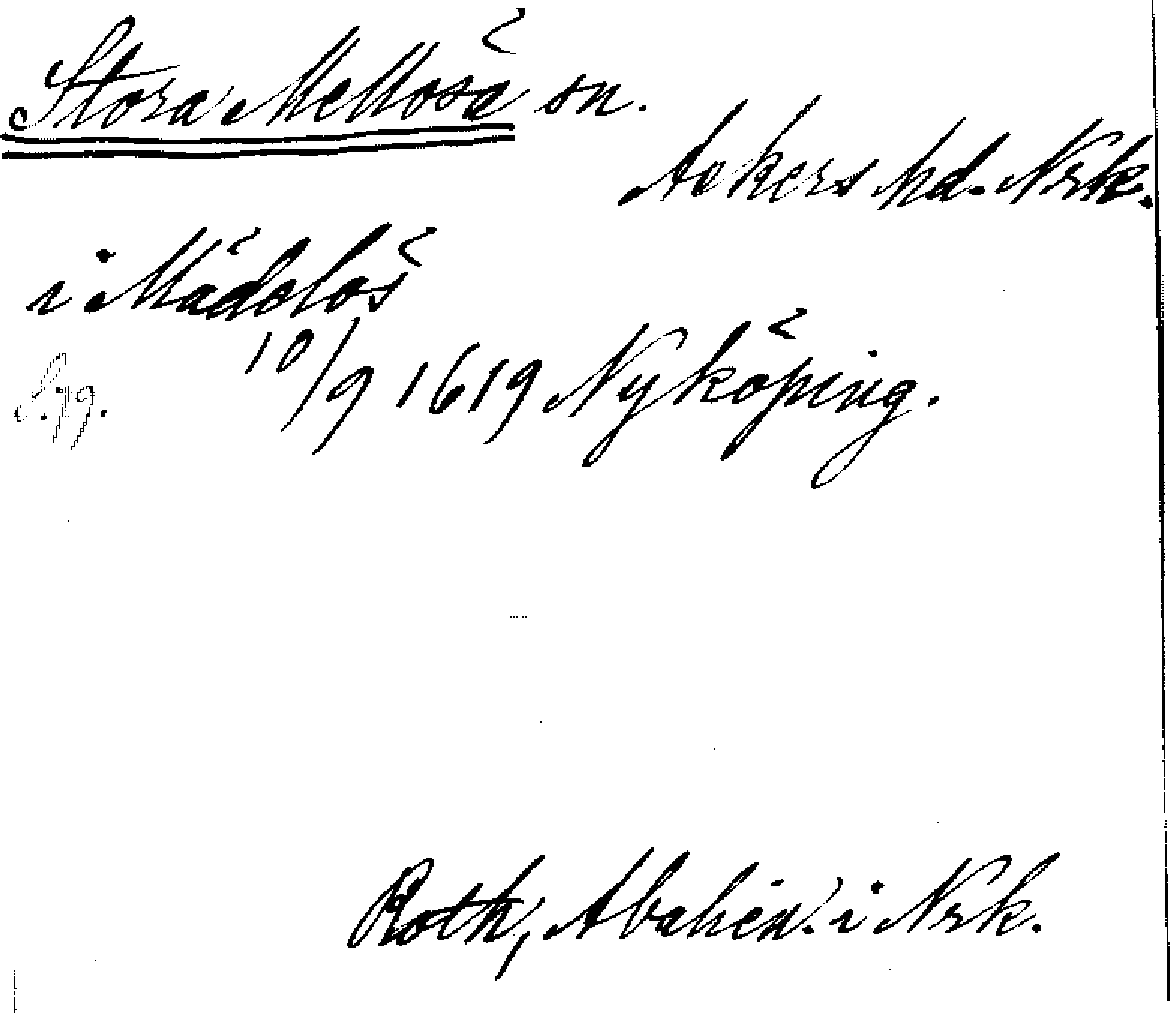 Stora Mellösa sn.
Askers hd. Nrk.
i Mädelös
10/9 1619 Nyköping.
Roth, i Nrk.